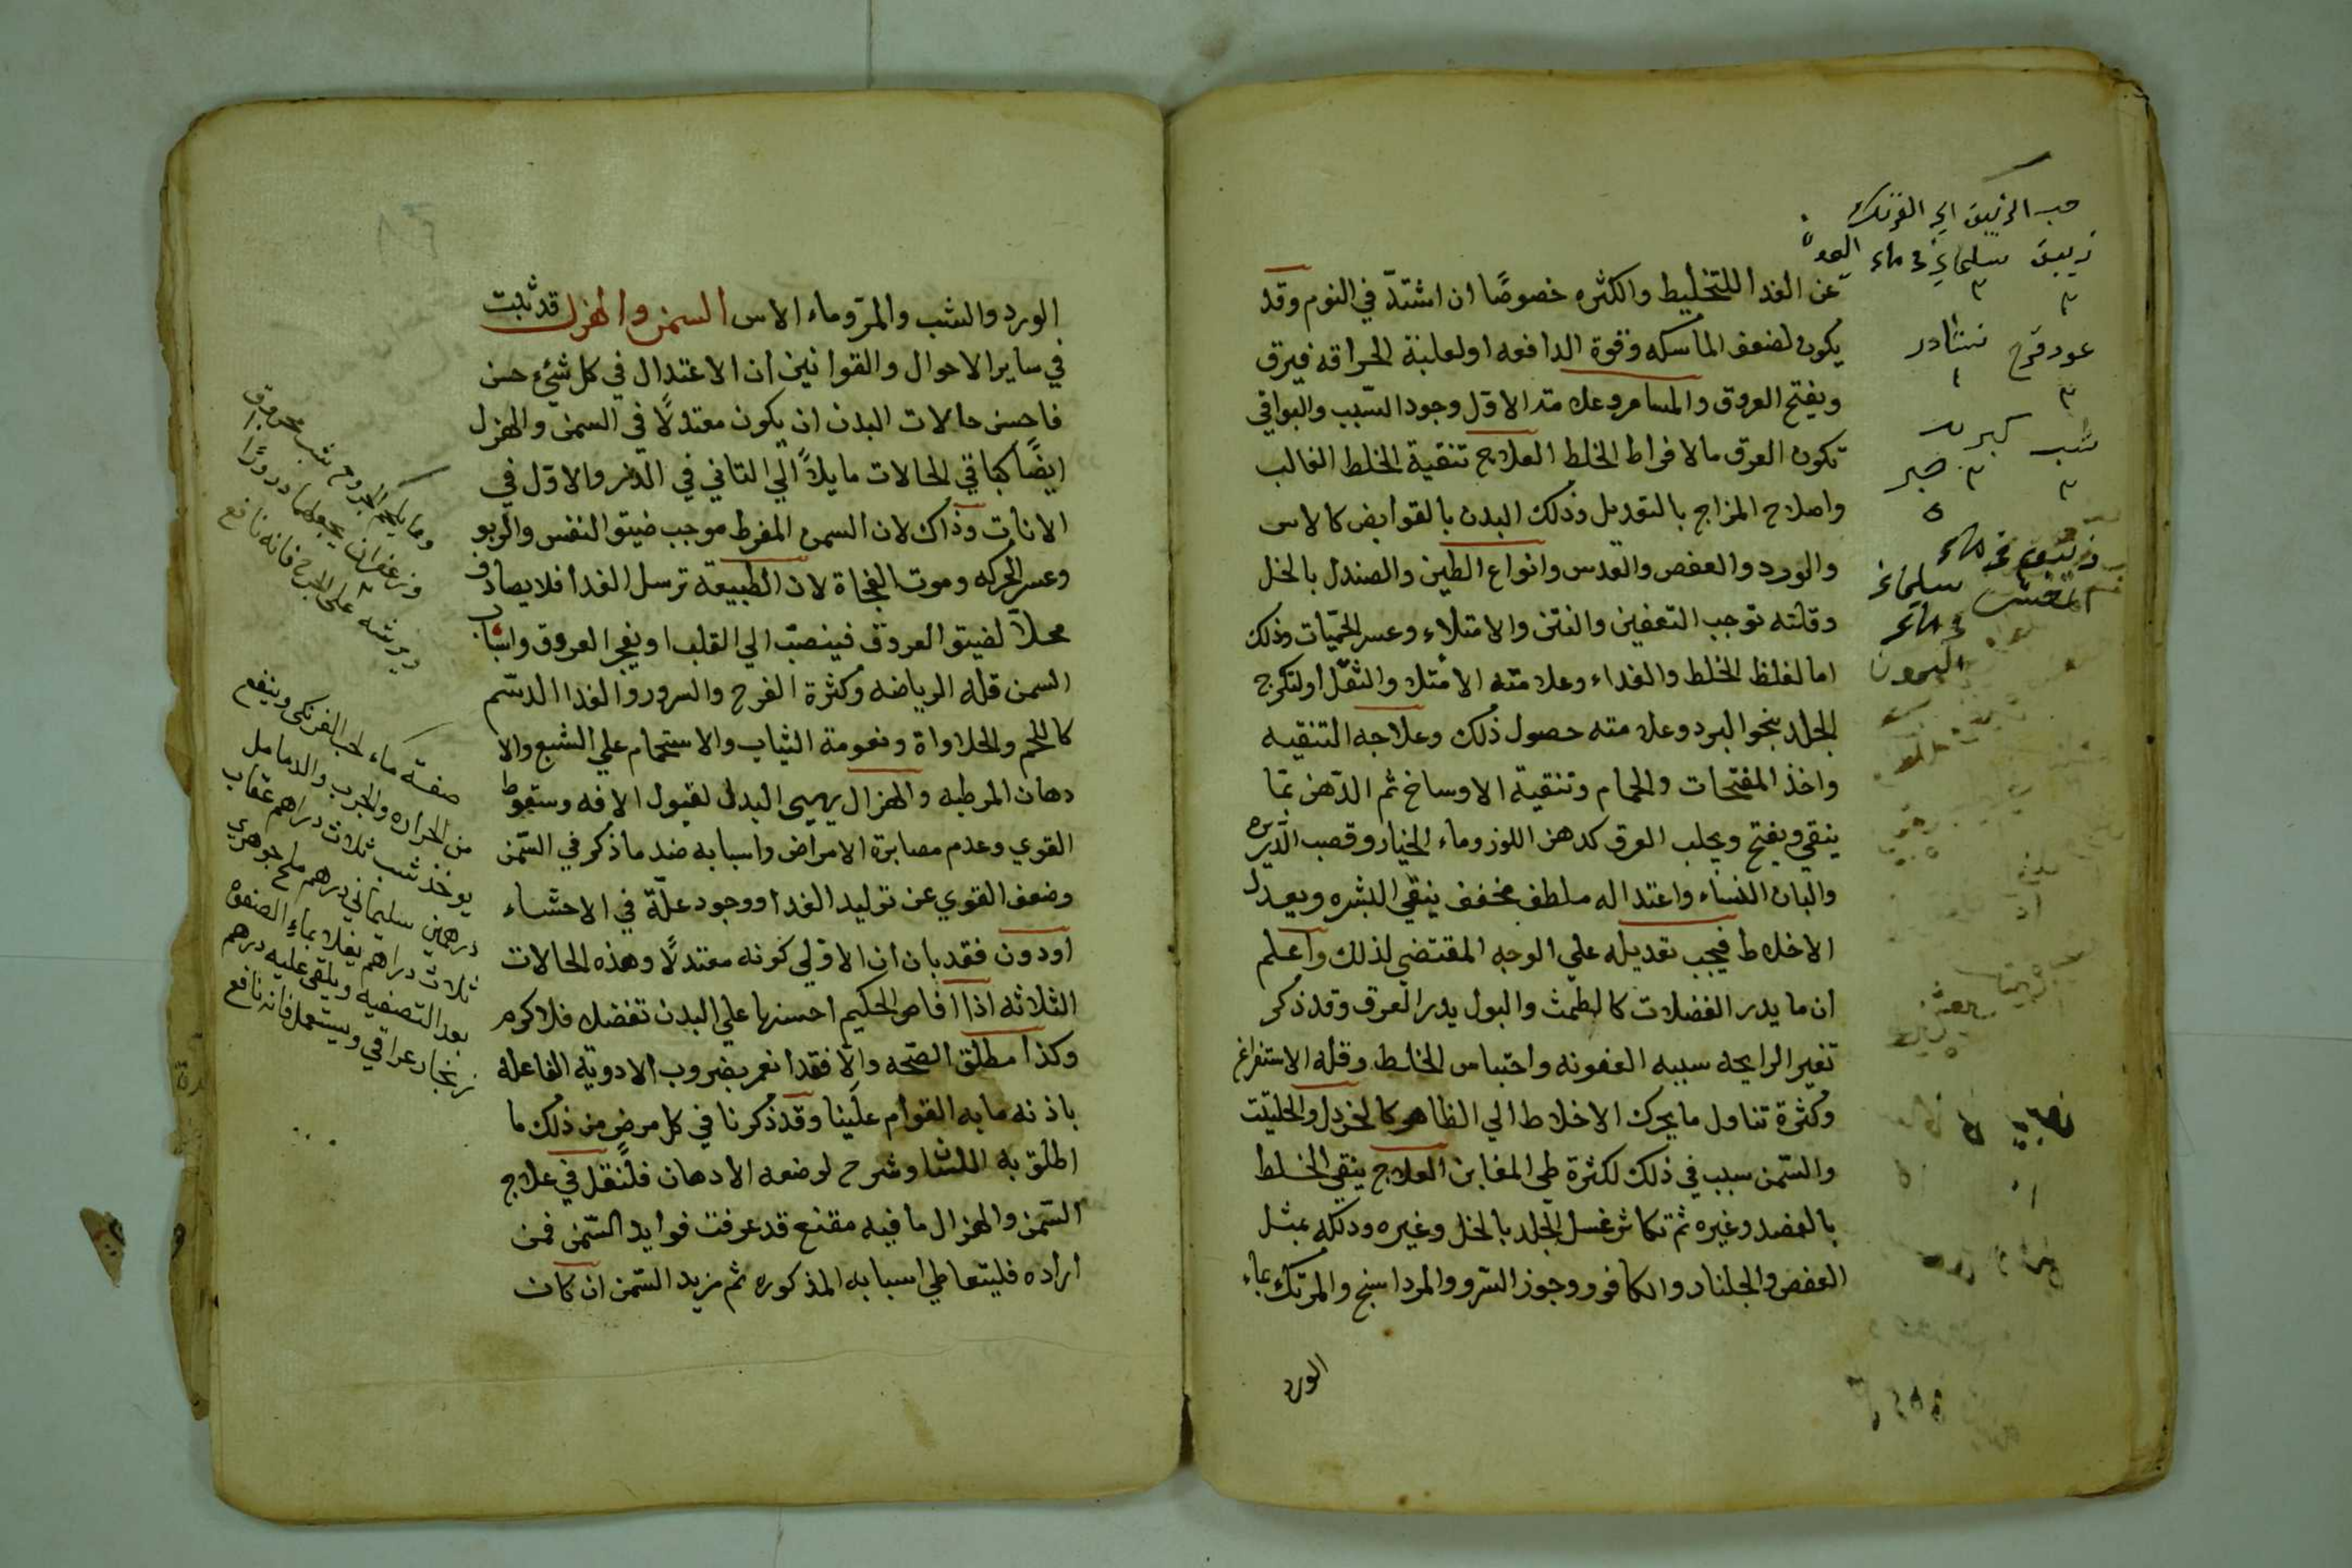 عن الغدا للتخليط والكثره خصوصًا ان اشتدّ في النوم وقد
يكون لضعف الماسكه وقوة الدافعه او لغلبة الحراقه فيرق
ويفتح العروق والمسام وعلامته الاوّل وجود السّبب والبواقي
تكون العرق ما لافراط الخلط العلاج تنقية الخلط الغالب
واصلاح المزاج بالتعديل وذلك البدن بالقوابض كالاس
والورد والعفص والعدس وانواع الطين والصندل بالخل
وقلته توجب التعفين والنتن والامتلاء وعسر الحميّات وذلك
اما لغلظ الخلط والغداء وعلامته الامتلا والثقّل او لتكرج
الجلد بنحو البرد وعلامته حصول ذلك وعلاجه التنقيه
واخذ المفتحات والحمام وتنقية الاوساخ ثم الدّهن بمّا
ينقي ويفتح ويجلب العرق كدهن اللوز وماء الخيار وقصب الذّريره
والبان النساء واعتداله ملطف مخفف ينقي البشره ويعدل
الاخلاط فيجب تعديله علي الوجه المقتضي لذلك واعلم
ان ما يدر الفضلات كالطمث والبول يدر العرق وقد ذكر
تغير الرايحه سببه العفونه واحتباس الخلط وقله الاستفراغ
وكثرة تناول ما يحرك الاخلاط الي الظاهر كالخردل والحلتيت
والسّمن سبب في ذلك لكثرة طي المغابن العلاج ينقي الخلط
بالفصد وغيره ثم تكاثر غسل الجلد بالخل وغيره ودلكه بمثل
العفص والجلنار والكافور وجوز السّرو والمرداسنج والمرتك بماء
الورد
زيبق سليماني في ماء
عود قرح نشادر
شب كبريت
صبر
سليماني
في ماء
اليمون
الورد والشب والمرّ وماء الاس السمن والهزل قد ثبت
في ساير الاحوال والقوانين ان الاعتدال في كل شيء حسن
فاحسن حالات البدن ان يكون معتدلًا في السمن والهزل
ايضًا كباقي الحالات مايلاً الي الثاني في الذّكر والاوّل في
الاناث وذاك لان السمن المفرط موجب ضيق النفس والربو
وعسر الحركه وموت الفجاة لان الطبيعة ترسل الغدا فلا يصادف
محلاً لضيق العروق فينصبّ الي القلب او يفجر العروق واسباب
السمن قله الرياضه وكثرة الفرح والسرور والغدا الدسّم
كاللحم والحلاواة ونعومة الثياب والاستحمام علي الشبع والا
دهان المرطبه والهزال يهيي البدن لقبول الافه وسقوط
القوي وعدم مصابرة الامراض واسبابه ضد ما ذكر في السّمن
وضعف القوي عن توليد الغدا ووجود علّة في الاحشاء
او دون فقد بان ان الاوّلي كونه معتدلًا وهذه الحالات
الثلاثه اذا افاض الحكيم احسنها علي البدن تفضلا فلا كرم
وكذا مطلق الصّحه والّا فقد انعم بضروب الادوية الفاعله
باذنه ما به القوام علينا وقد ذكرنا في كل مرضٍ من ذلك ما
اطلق به اللسان وشرح لوضعه الادهان فلنقل في علاج
السّمن والهزال ما فيه مقنع قد عرفت فوايد السّمن فمن
اراده فليتعاطي اسبابه المذكوره ثم مزيد السّمن ان كان
وزعفران يجعلها درورًا
ويرشه على الجرح فانه نافع
صفة ماء لحب الفرنكى وينفع
من الحراره والجرب والدمامل
يوخذ شب ثلاث دراهم عقاب
درهمين سليماني درهم ملح جوهري
ثلاث دراهم يغلا بماء
بعد التصفيه ويلقى عليه درهم
زنجار عراقي ويستعمل فانه نافع